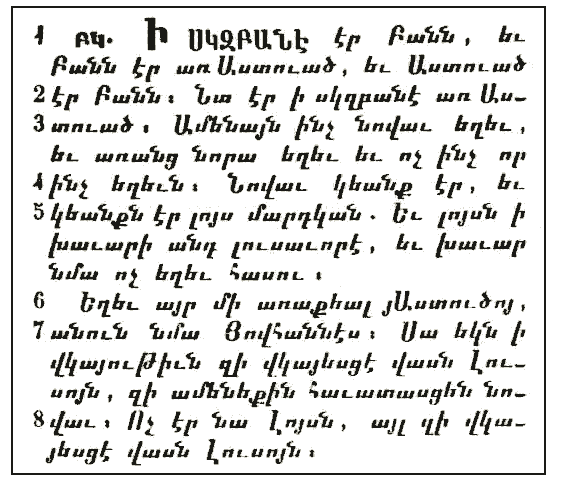 1 ԲԿ. Ի ՍԿԶԲԱՆԷ էր Բանն, եւ
Բանն էր առ Աստուած, եւ Աստուած
2 էր Բանն։ Նա էր ի սկզբանէ առ Աս-
3 տուած։ Ամենայն ինչ նովաւ եղեւ,
եւ առանց նորա եղեւ եւ ոչ ինչ որ
4 ինչ եղեւն։ Նովաւ կեանք էր, եւ
5 կեանքն էր լոյս մարդկան. Եւ լոյսն ի
խաւարի անդ լուսաւորէ, եւ խաւար
նմա ոչ եղեւ հասու։
6 Եղեւ այր մի առաքեալ յԱստուծոյ,
7 անուն նմա Յովհաննէս։ Սա եկն ի
վկայութիւն զի վկայեսցէ վասն Լու-
սոյն, զի ամենեքին հաւատասցեն նո-
8 վաւ։ Ոչ էր նա Լոյսն, այլ զի վկա-
յեսցէ վասն Լուսոյն։